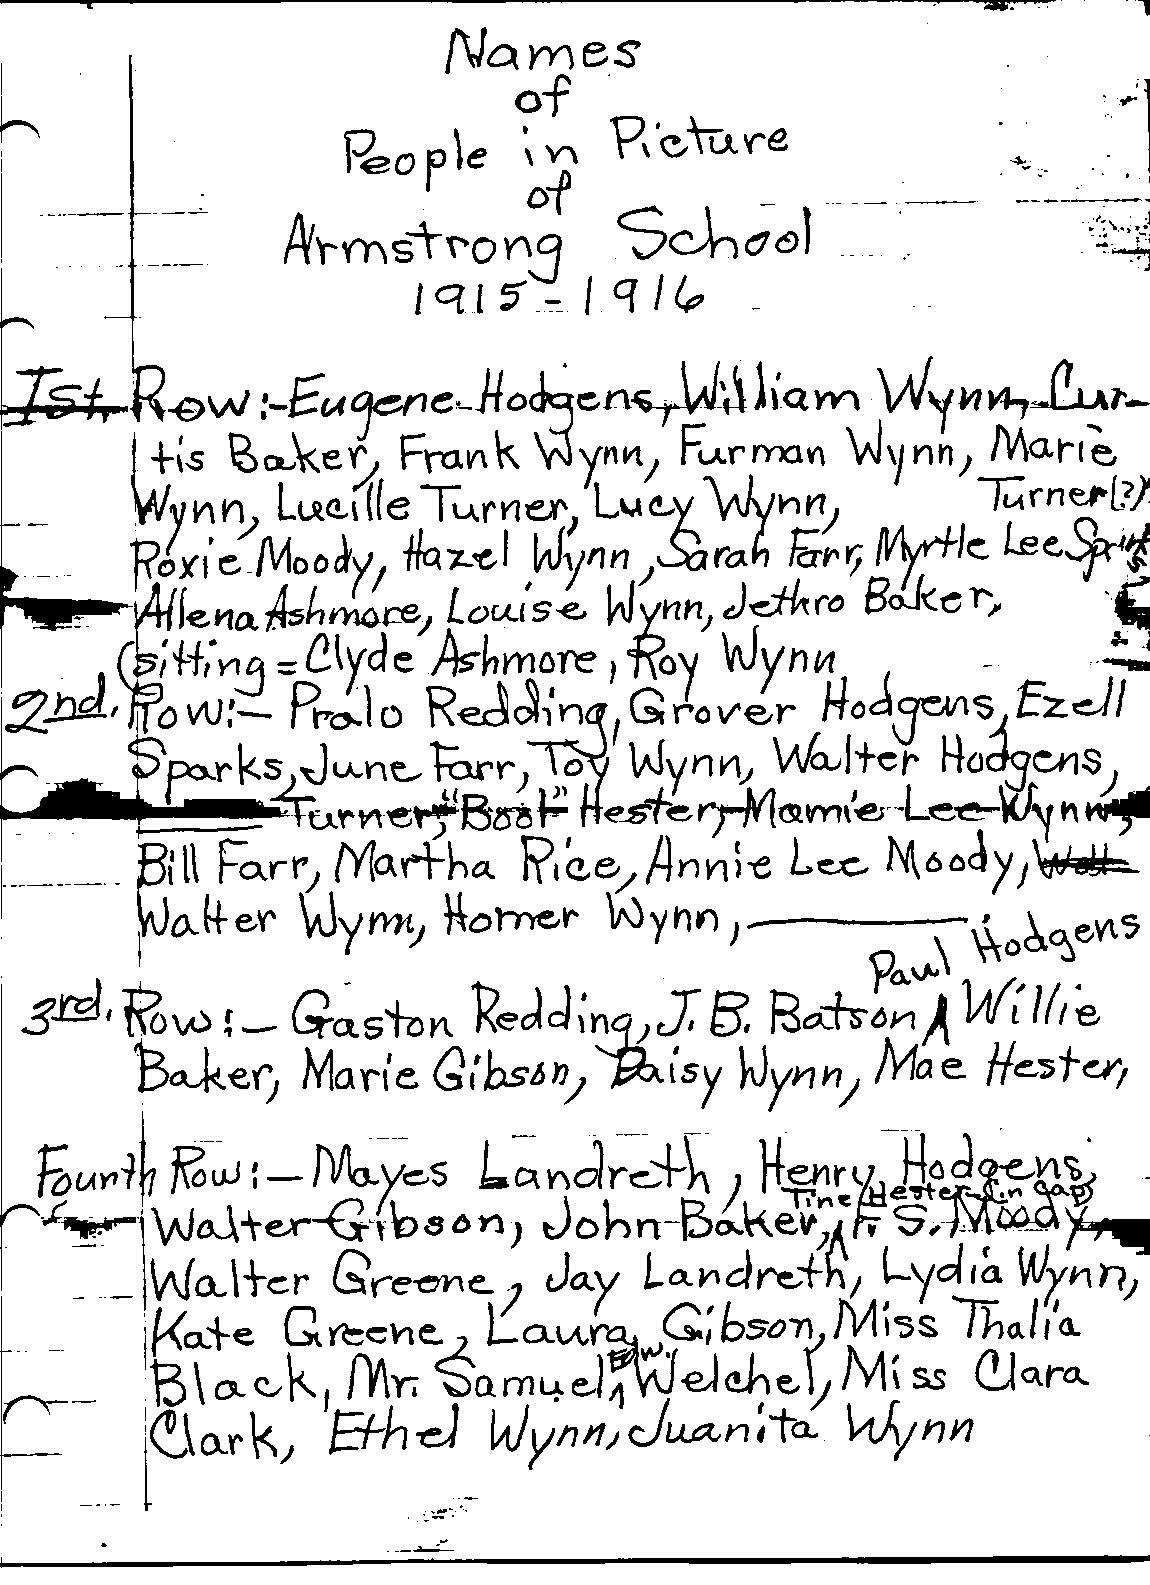 Names
of
People in Picture
of
Armstrong School
1915-1916
1st. Row:- Eugene Hodgens, William Wynn, Cur-
tis Baker, Frank Wynn, Furman Wynn, Marie
Wynn, Lucille Turner, Lucy Wynn, Turner(?)
Roxie Moody, Hazel Wynn, Sarah Farr, Myrtle Lee
Allena Ashmore, Louise Wynn, Jethro Baker,
(sitting = Clyde Ashmore, Roy Wynn
2nd. Row:- Pralo Redding, Grover Hodgens, Ezell
Sparks, June Farr, Toy Wynn, Walter Hodgens,
Turner, "Boot" Hester, Mamie Lee Wynn,
Bill Farr, Martha Rice, Annie Lee Moody,
Walter Wynn, Homer Wynn,
Paul Hodgens
3rd. Row:- Gaston Redding, J. B. Batson Willie
Baker, Marie Gibson, Daisy Wynn, Mae Hester,
Fourth Row:- Mayes Landreth, Henry Hodgens,
Tine Hester (in gap)
Walter Gibson, John Baker, F. S. Moody,
Walter Greene, Jay Landreth, Lydia Wynn,
Kate Greene, Laura Gibson, Miss Thalia
Edw.
Black, Mr. Samuel Welchel, Miss Clara
Clark, Ethel Wynn, Juanita Wynn